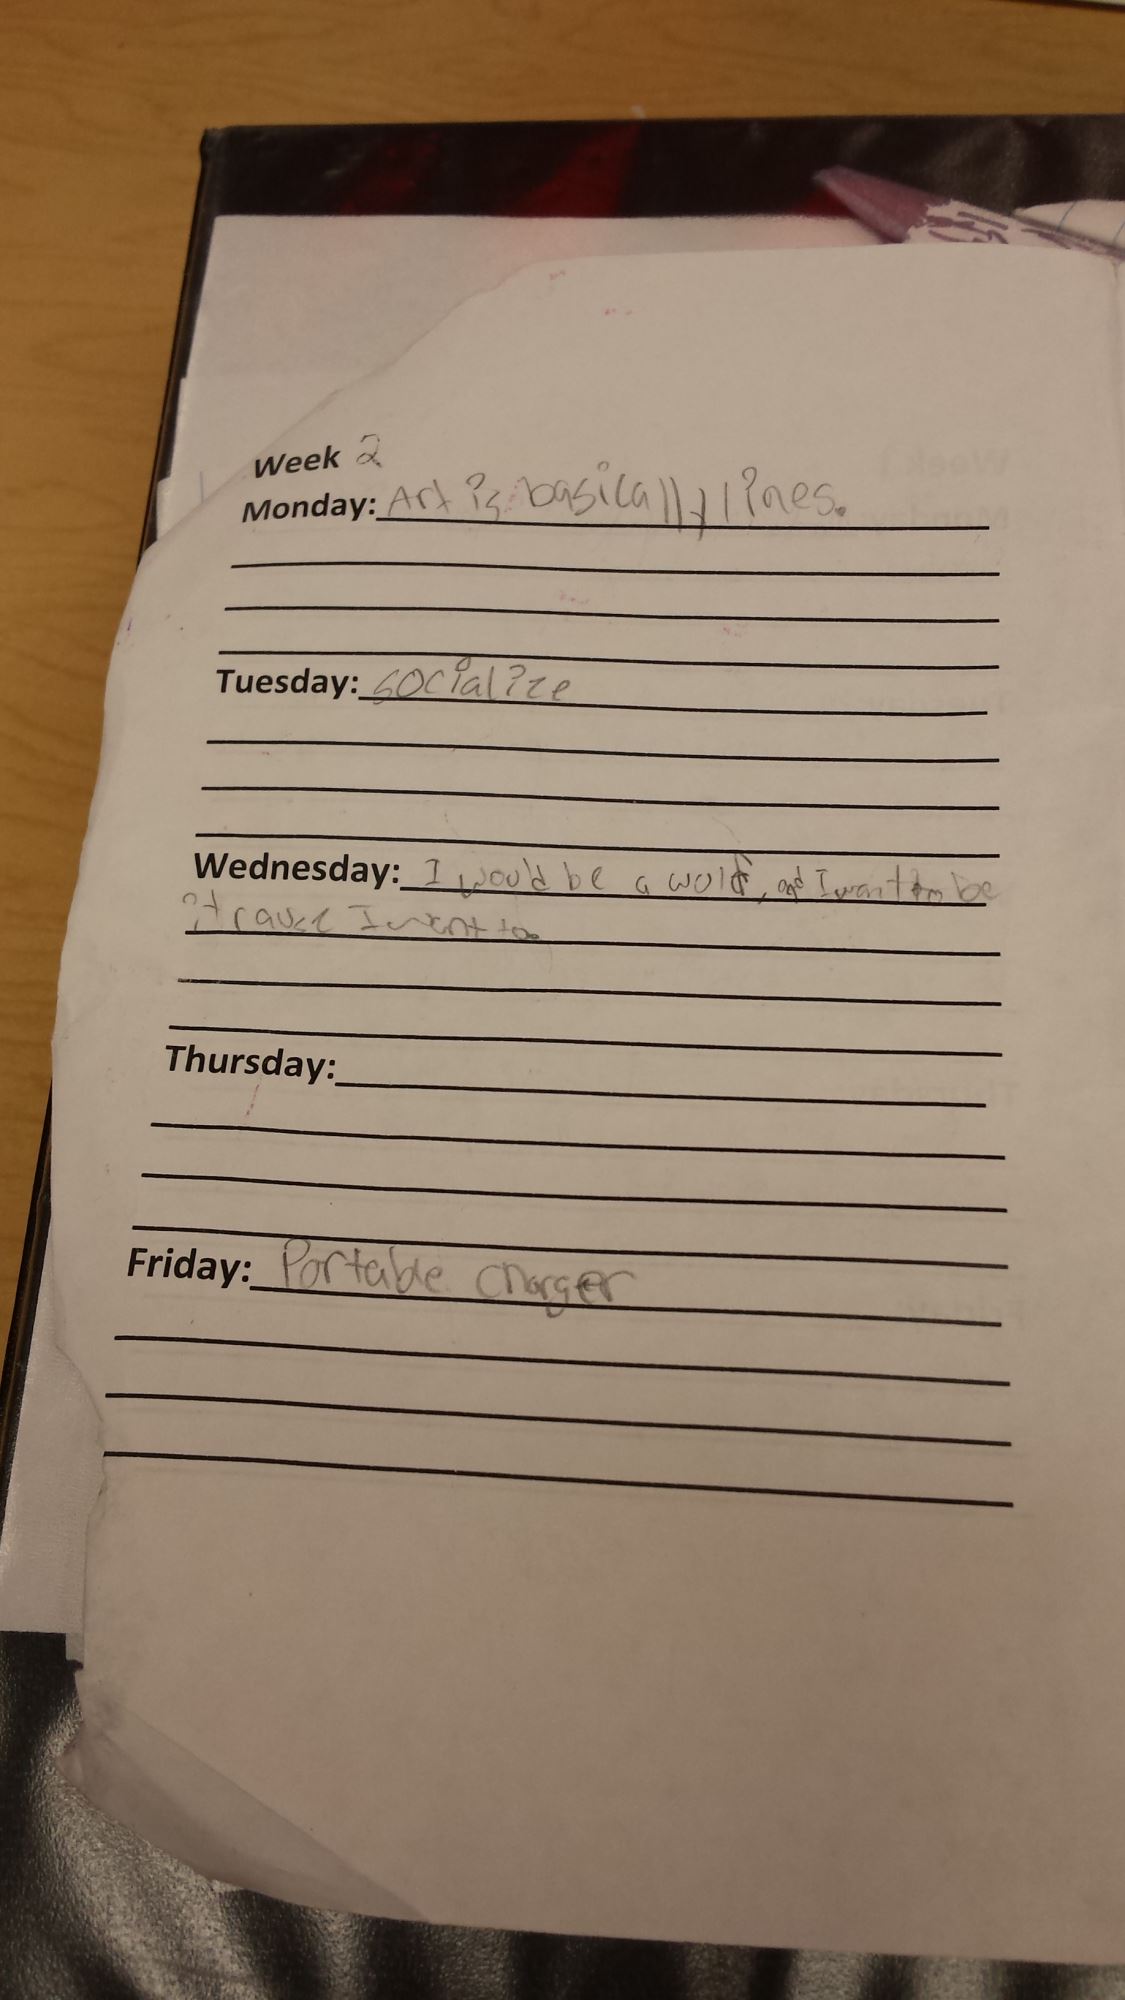 Week 2
Monday: Art is basically lines.
Tuesday: socialize
Wednesday: I would be a wolf, and I want to be
it cause I want to.
Thursday:
Friday: Portable charger